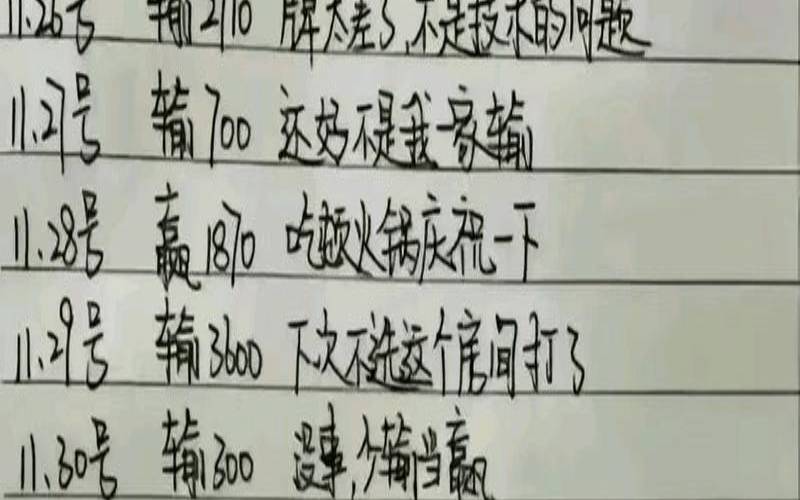 11.26号 输2710 牌太差了,不是技术的问题
11.27号 输700 还好不是我一家输
11.28号 赢1870 吃顿火锅庆祝一下
11.29号 输3600 下次不选这个房间打了
11.30号 输300 没事,少输当赢